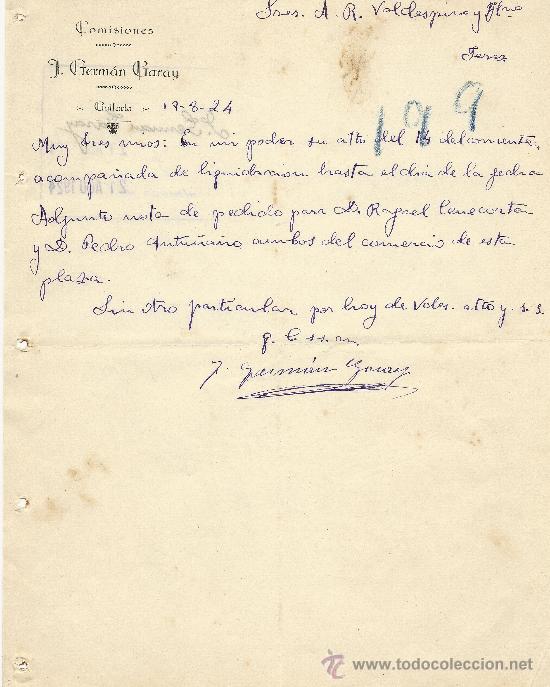 Sres. A. R. Valdespino y Hno
Jerez
Comisiones
J. Germán Garay
19-8-24
199
Muy Sres mios: En mi poder su atta del 14 del corriente,
acompañada de liquidacion hasta el dia de la fecha
Adjunto nota de pedido para D. Rafael
y D. Pedro Antuñano ambos del comercio de esta
plaza.
Sin otro particular por hoy de Vdes. atto y. s. s.
q. e. s. m.
J. Germán Garay
todocoleccion
www.todocoleccion.net